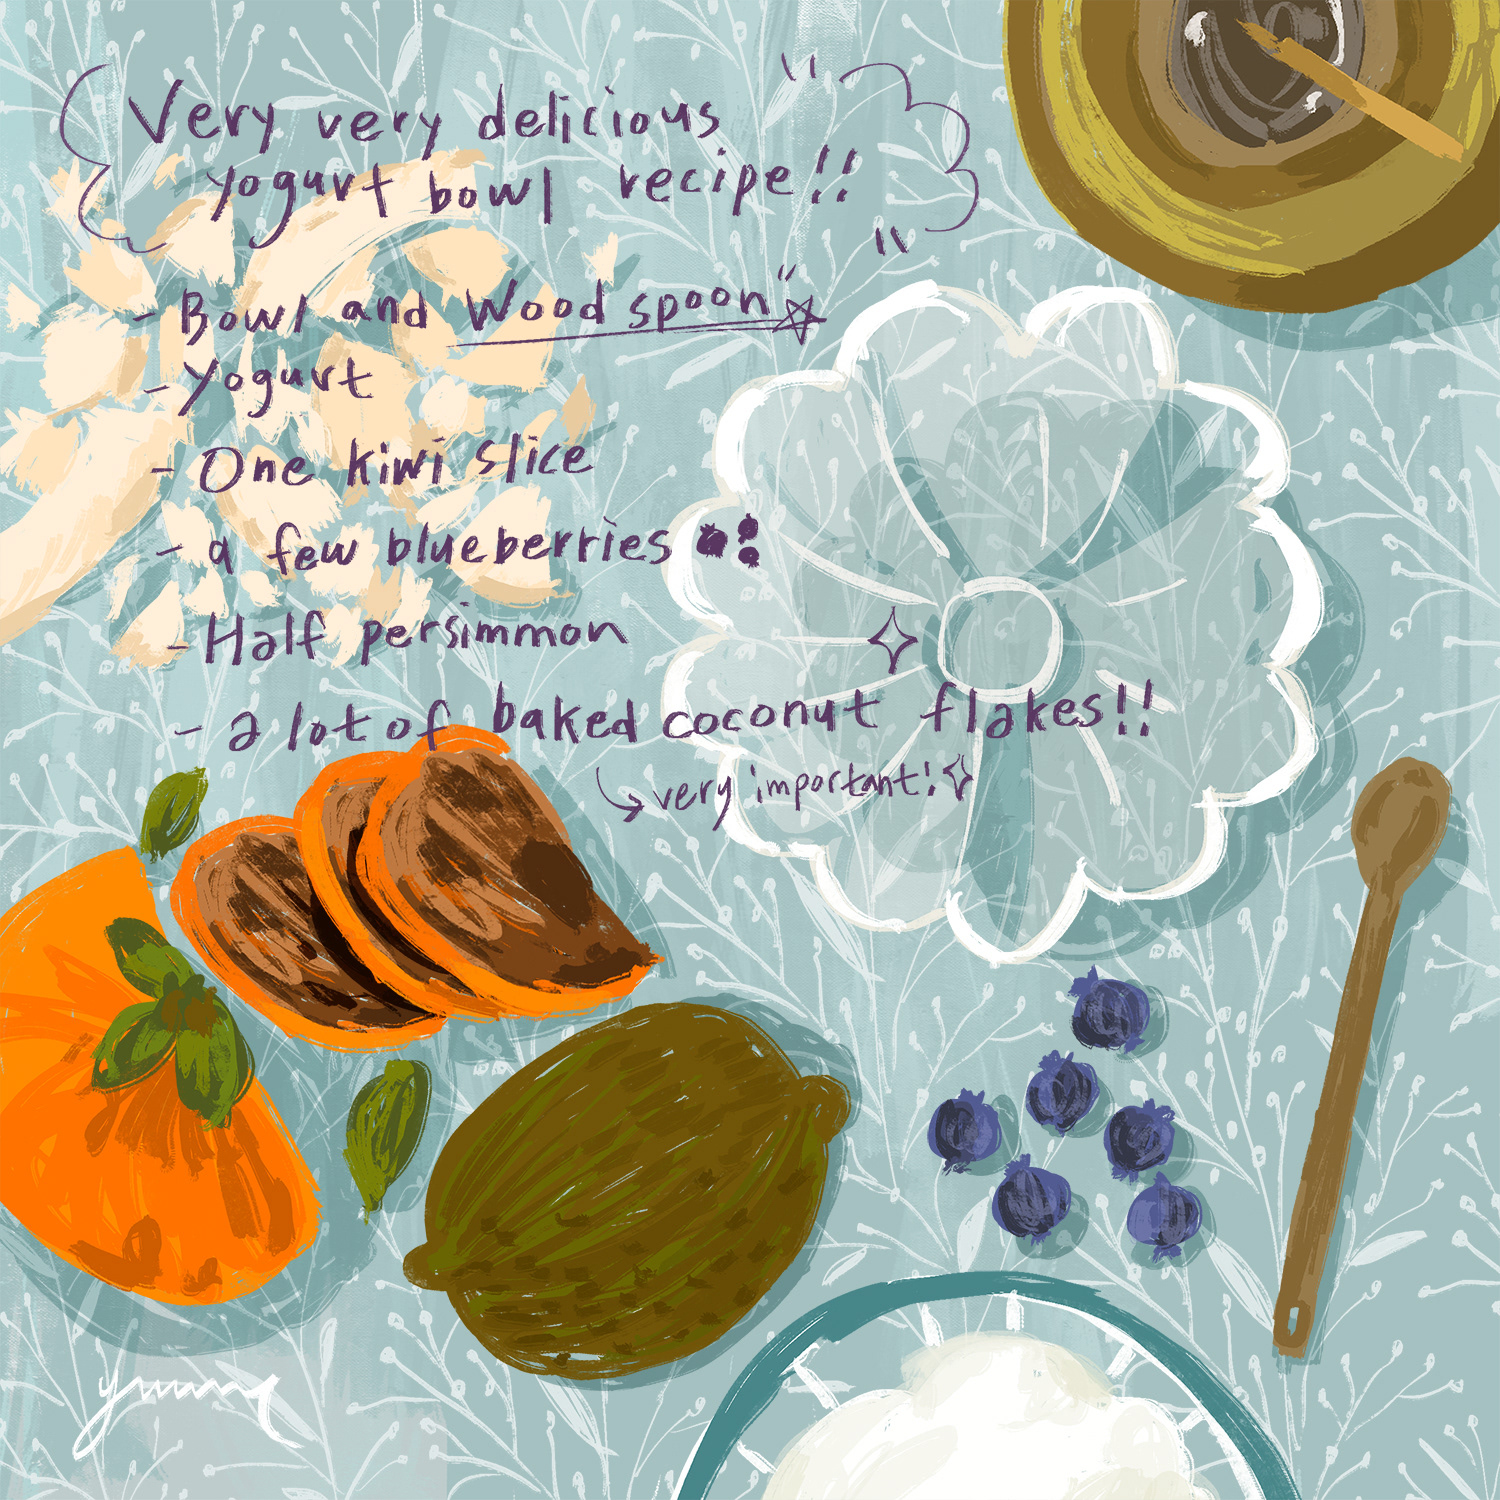 Very very delicious
yogurt bowl recipe!!
- Bowl and Wood spoon
- Yogurt
- One kiwi slice
- a few blueberries
- Half persimmon
- a lot of baked coconut flakes!!
very important!